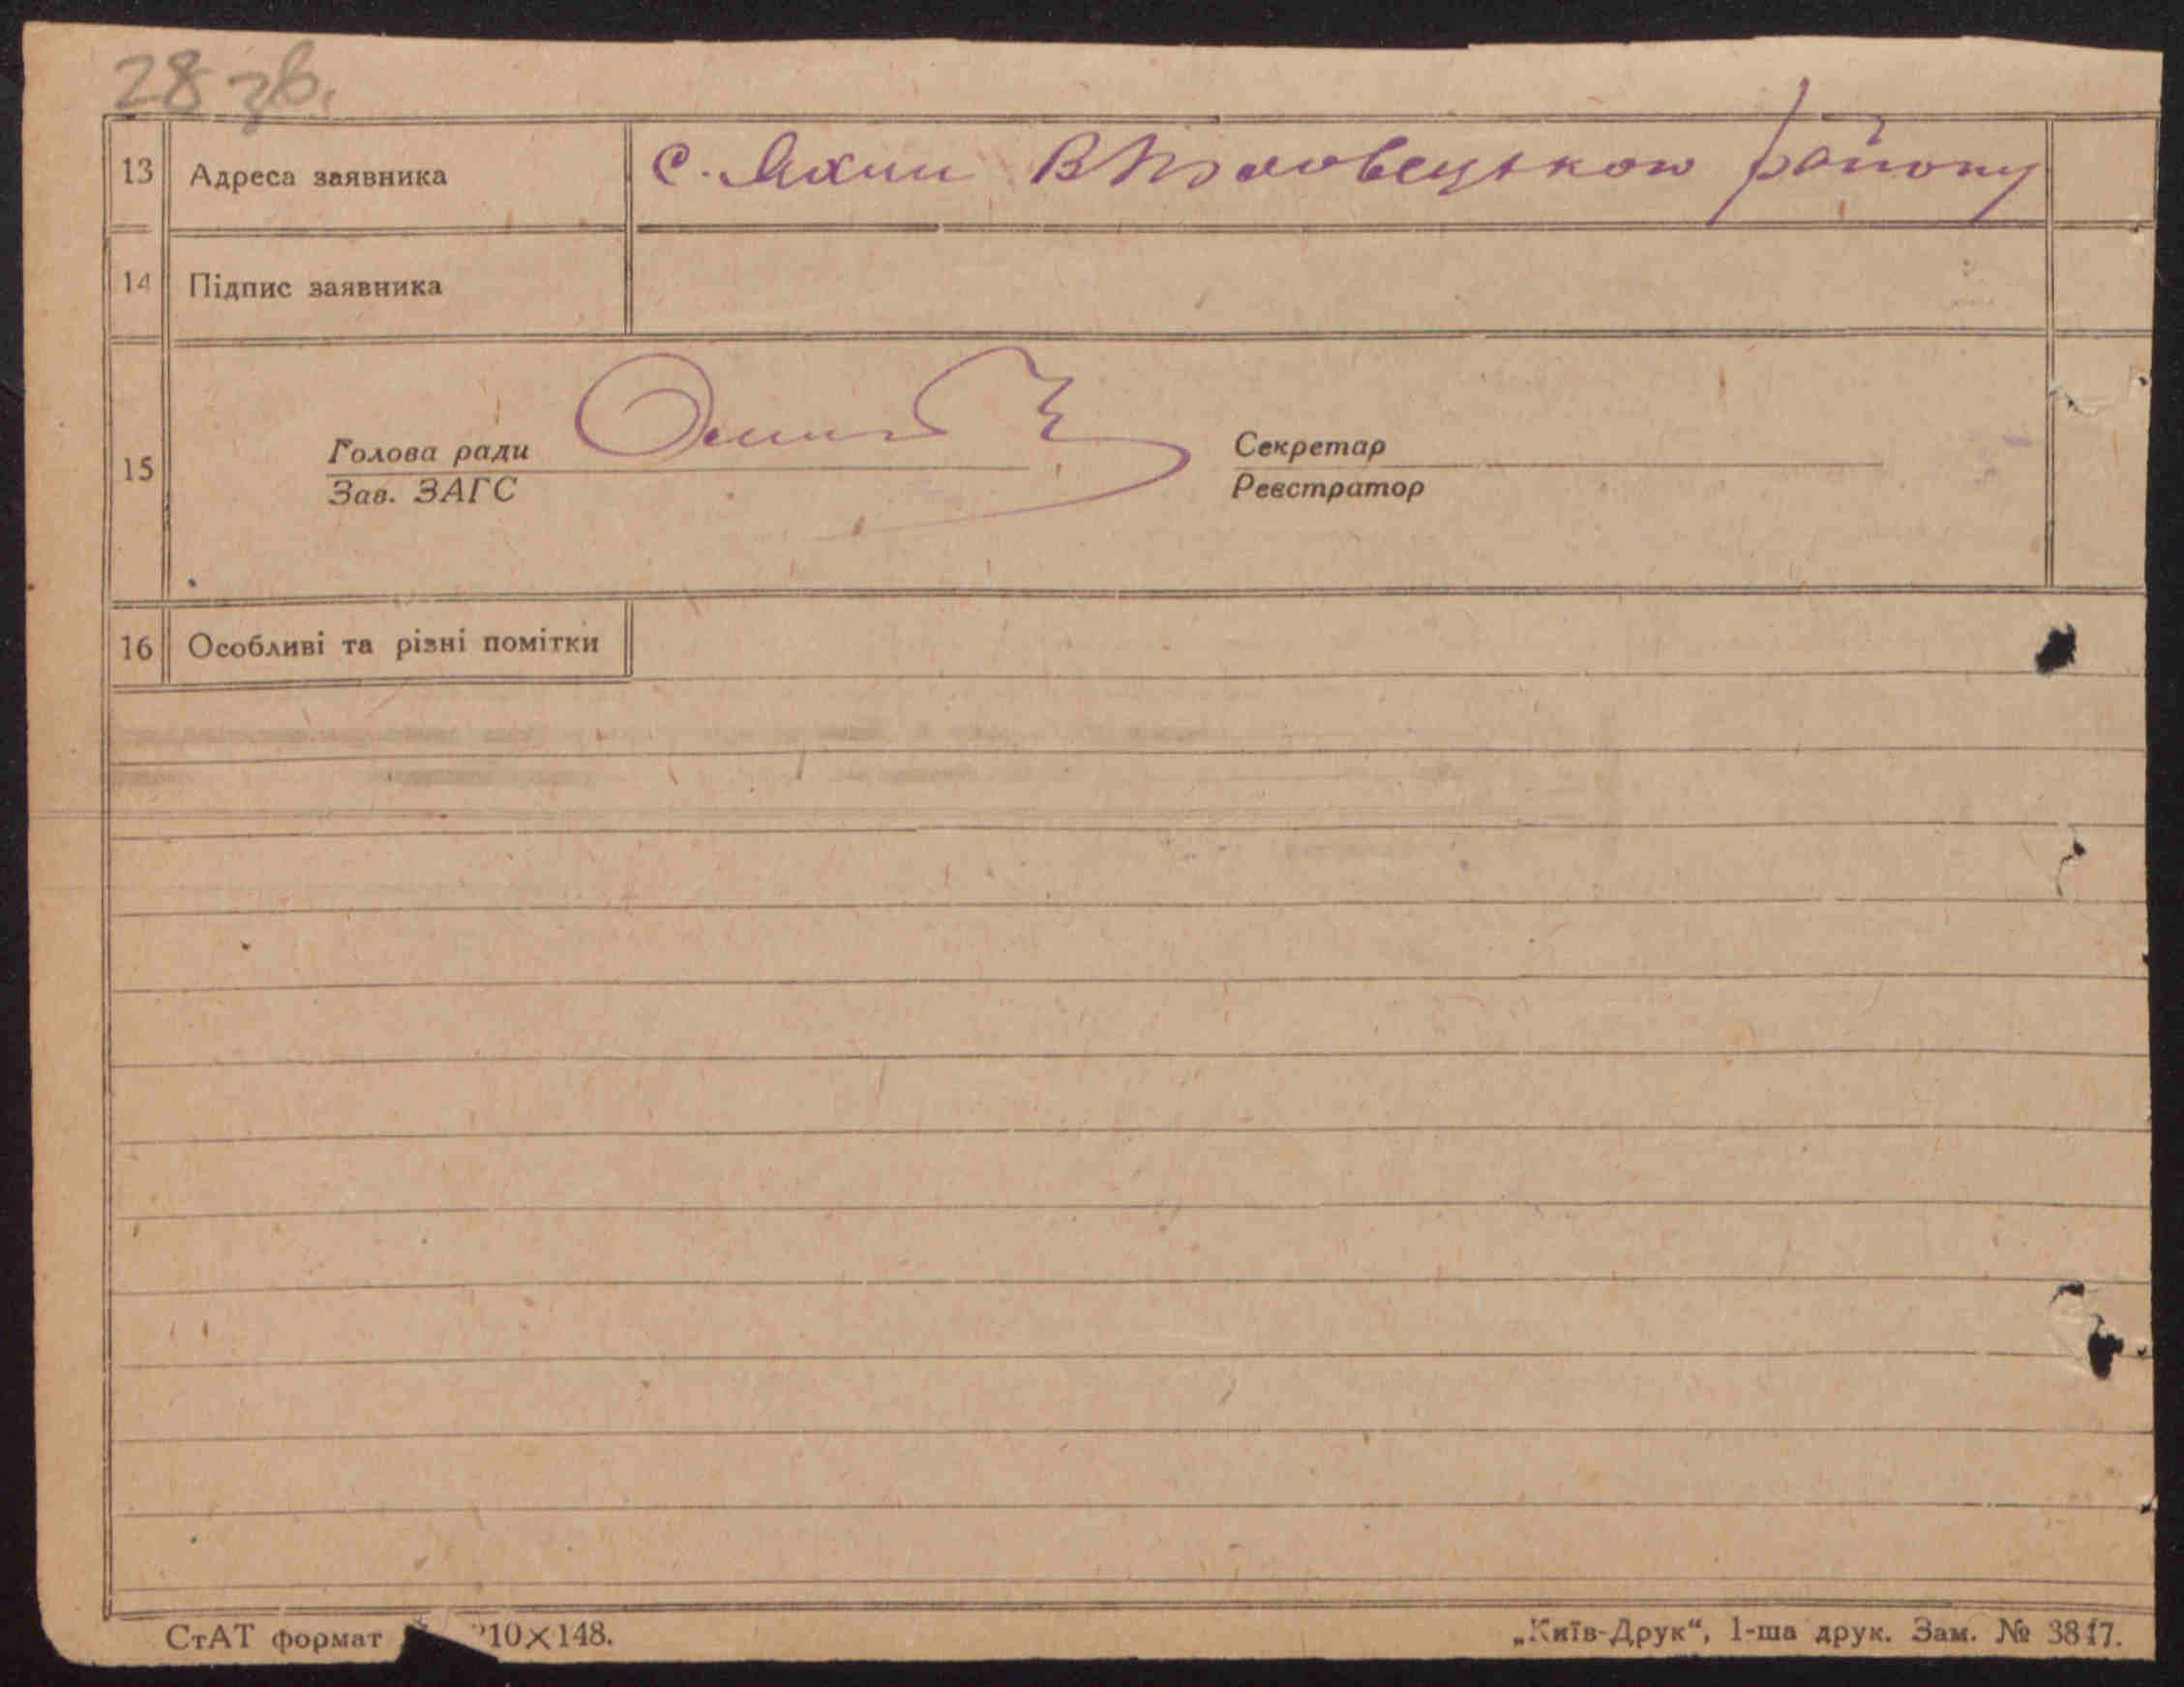 28 зв.
13 Адреса заявника с. Яхни району
14 Підпис заявника
15 Голова ради Секретар
Зав. ЗАГС Реєстратор
16 Особливі та різні помітки
СтАТ формат 210×148. „Київ-Друк“, 1-ша друк. Зам. № 3817.